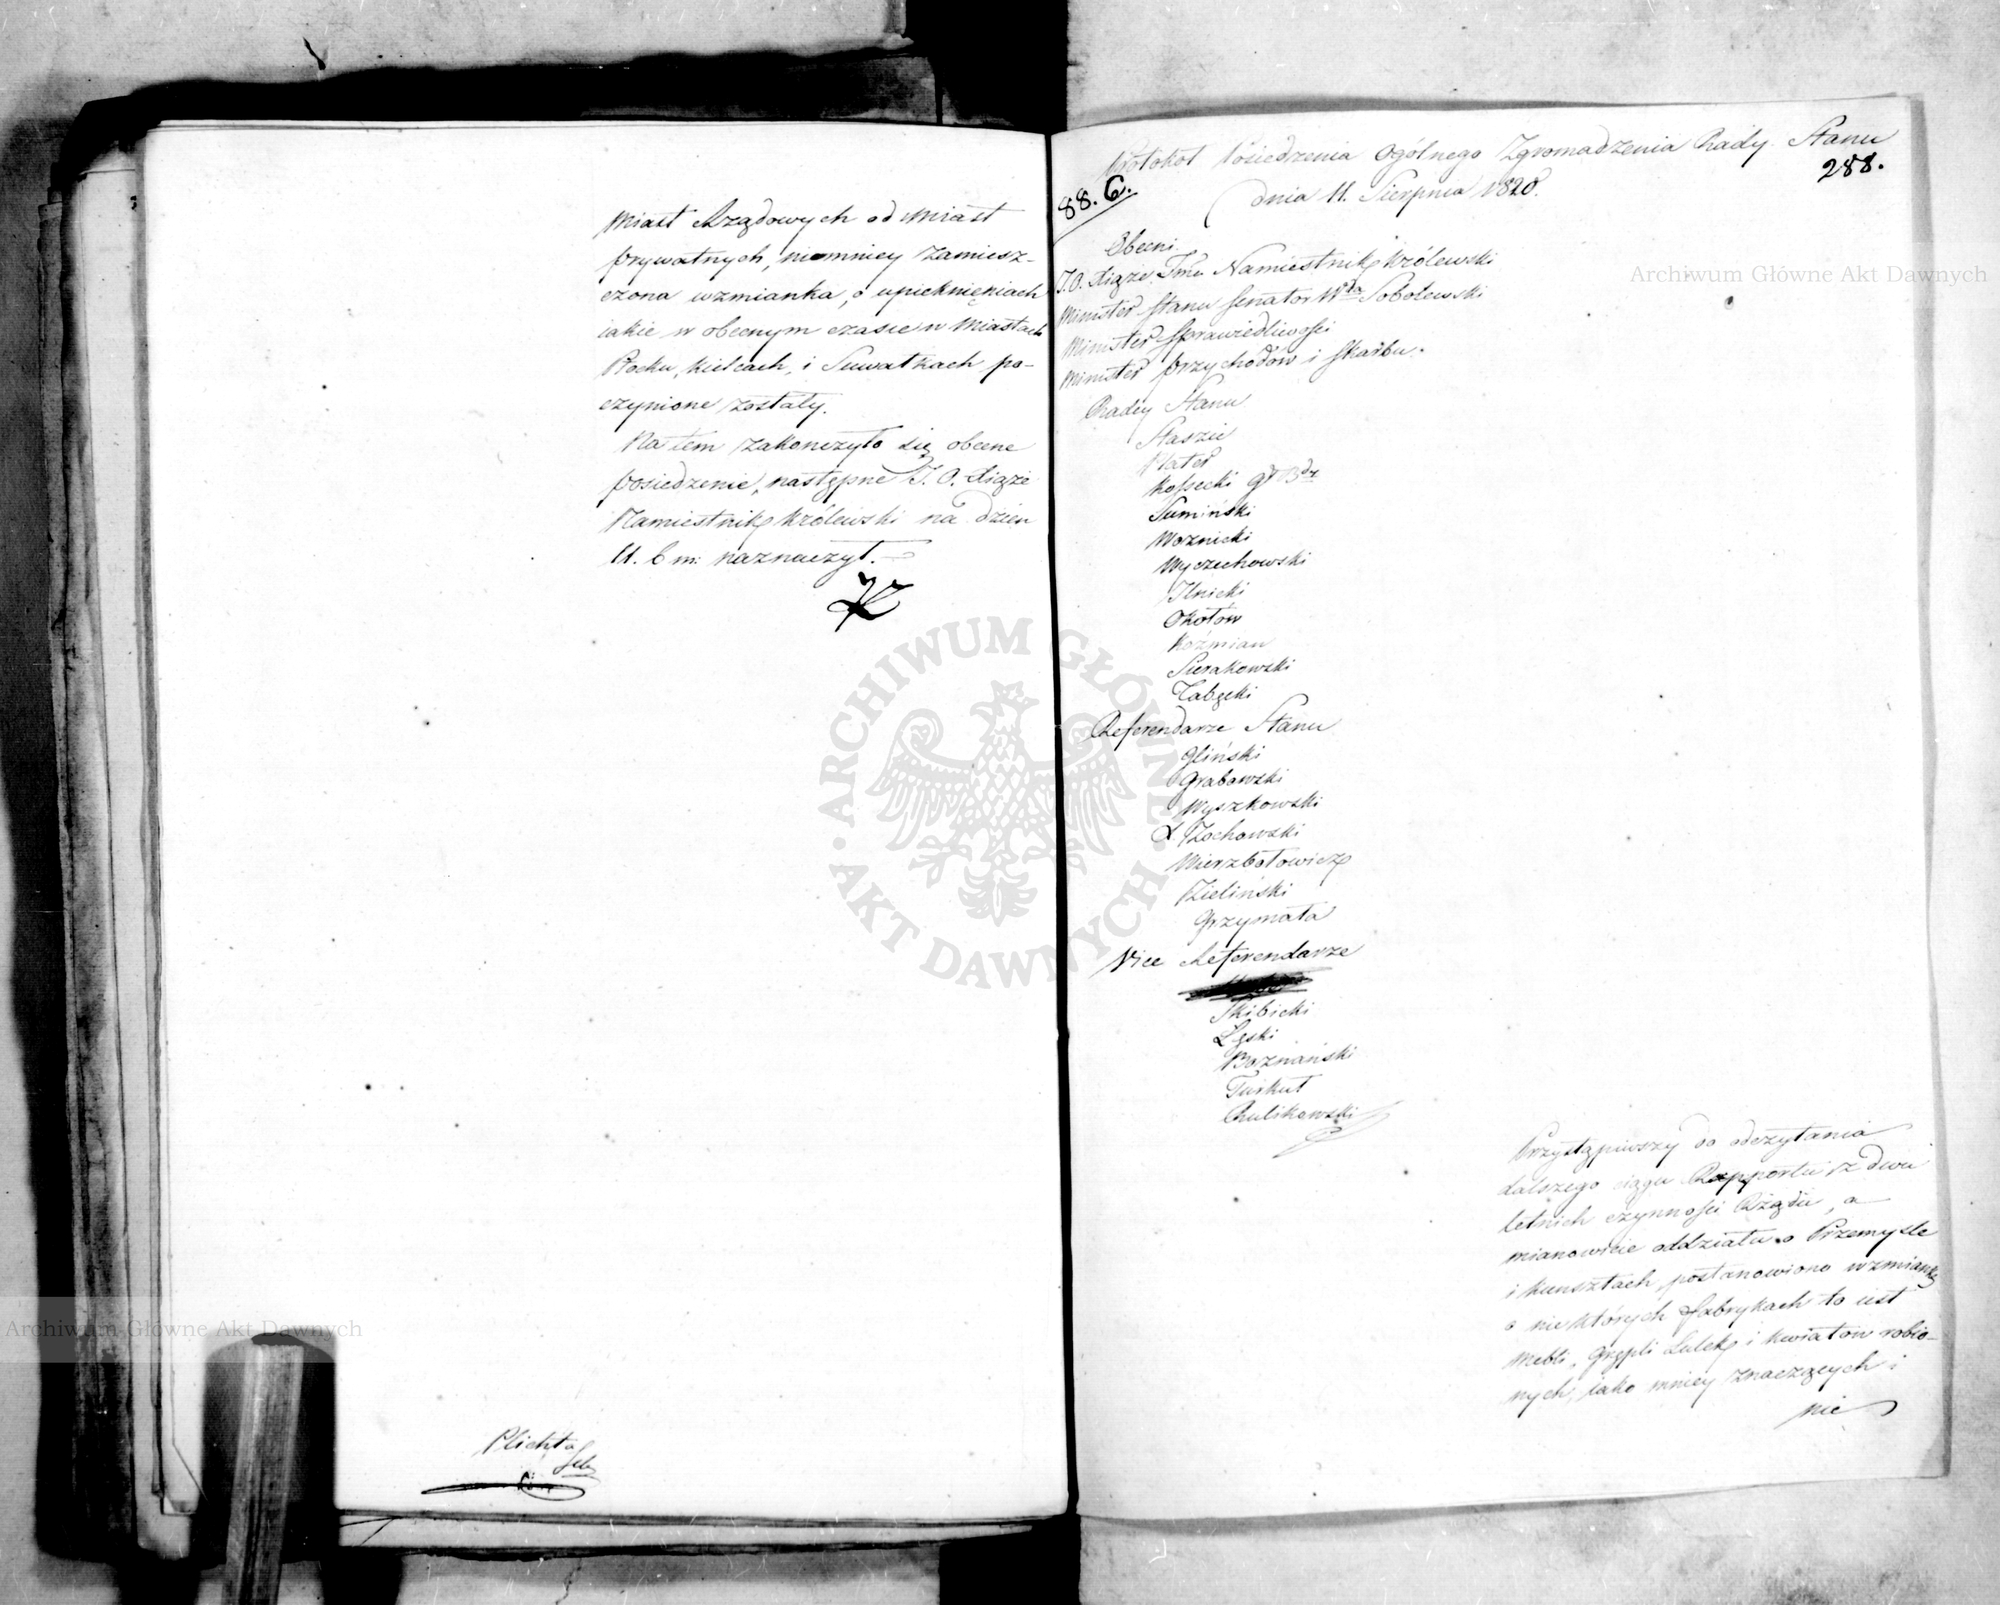 Miast Rządowych od Miast
prywatnych, niemniey zamiesz-
czona wzmianka, o upięknieniach
iakie w obecnym czasie w Miastach
Płocku, Kielcach, i Suwałkach po-
czynione zostały.
Na tem zakończyło się obecne
posiedzenie, następne J. O. Xiąże
Namiestnik Królewski na dzień
11. b m: naznaczył.
Plichta
Protokół Posiedzenia Ogólnego Zgromadzenia Rady Stanu
288.
88. G.
dnia 11. Sierpnia 1820.
Obecni
J. O. Xiąże Namiestnik Królewski
Minister Stanu Senator Wda Sobolewski
Minister Sprawiedliwości
Minister Przychodów i Skarbu.
Radcy Stanu
Staszic
Plater
Kossecki
Sumiński
Woznicki
Wyczechowski
Ilnicki
Okołów
Koźmian
Sierakowski
Łabęcki
Referendarze Stanu
Gliński
Grabowski
Wyszkowski
Żochowski
Wierzbołowicz
Zieliński
Grzymała
Vice Referendarze
Skibicki
Łęski
Boznański
Turkuł
Rulikowski
Przystąpiwszy do odczytania
dalszego ciągu Rapportu z dwu
letnich czynności Rządu, a
mianowicie oddziału o Przemyśle
i Kunsztach, postanowiono wzmiankę
o niektórych fabrykach to iest
Mebli, Grępli Lulek i kwiatów robio-
nych, iako mniey znaczących i
nie
Archiwum Główne Akt Dawnych
Archiwum Główne Akt Dawnych
ARCHIWUM GŁÓWNE AKT DAWNYCH